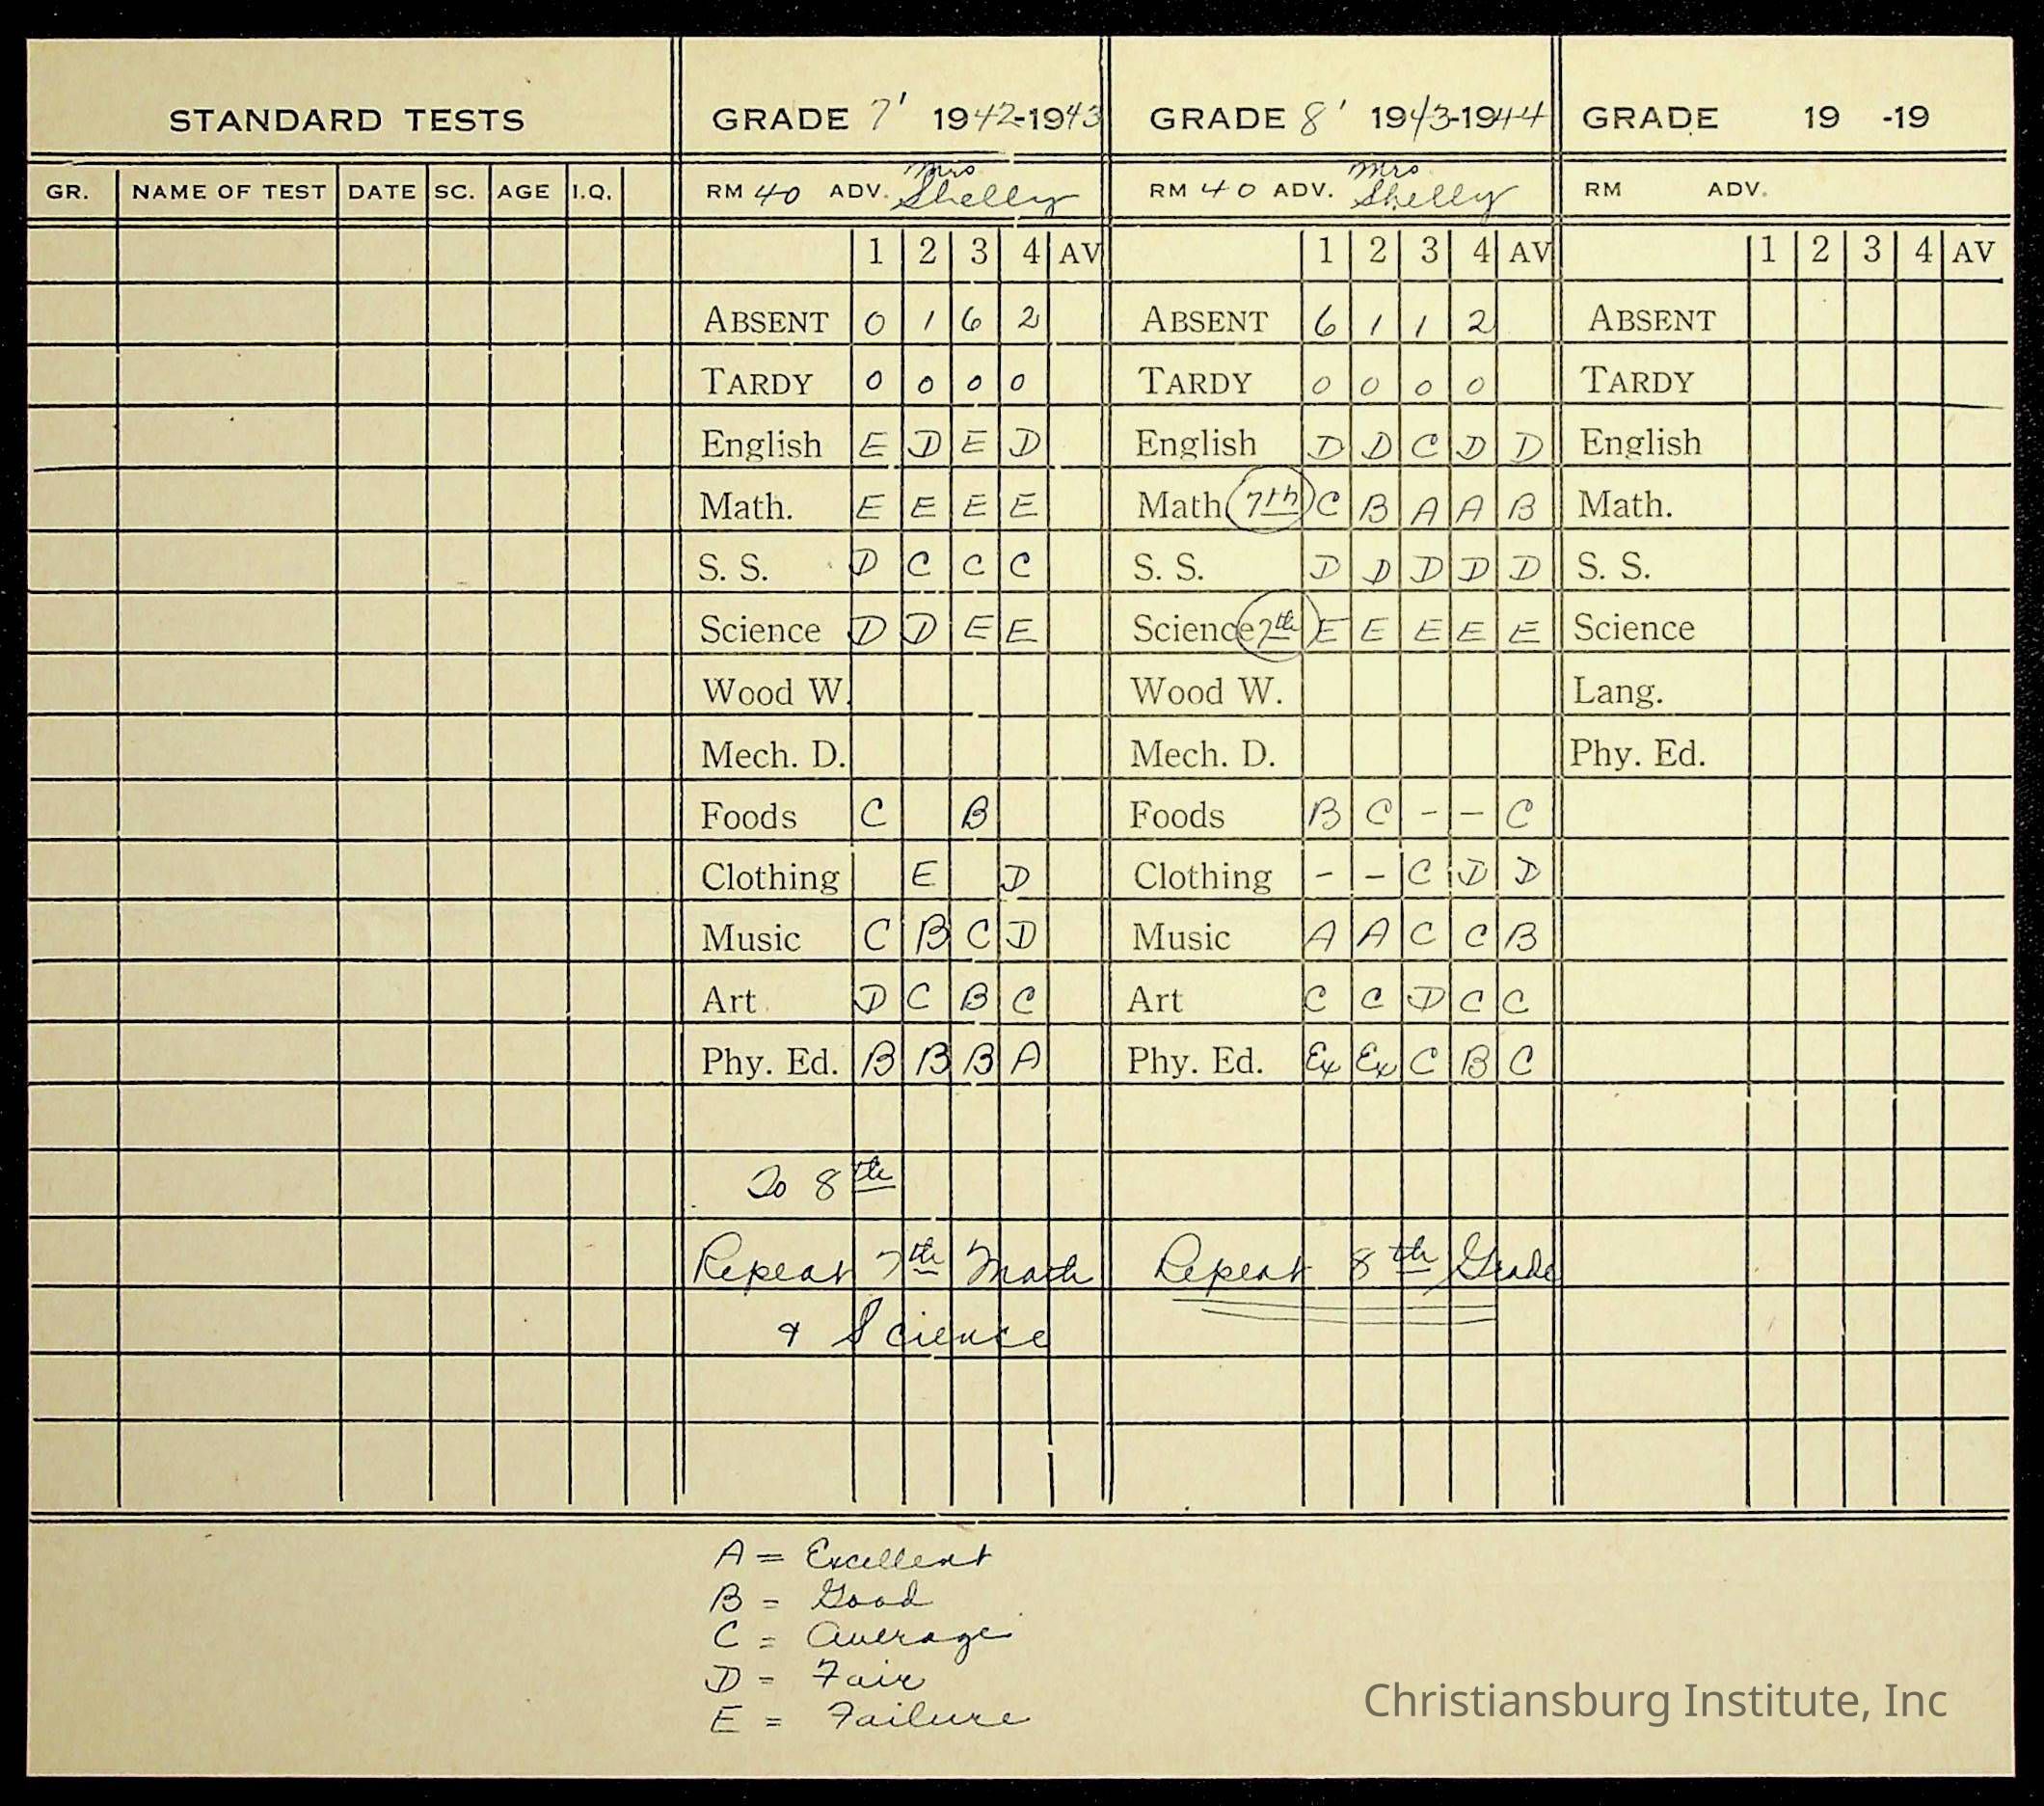 STANDARD TESTS
GR. NAME OF TEST DATE SC. AGE I.Q.
GRADE 7' 1942-1943
RM 40 ADV. Mrs Shelly
1 2 3 4 AV
ABSENT 0 1 6 2
TARDY 0 0 0 0
English E D E D
Math. E E E E
S. S. D C C C
Science D D E E
Wood W.
Mech. D.
Foods C B
Clothing E D
Music C B C D
Art D C B C
Phy. Ed. B B B A
To 8th
Repeat 7th Math
& Science
GRADE 8' 1943-1944
RM 40 ADV. Mrs Shelly
1 2 3 4 AV
ABSENT 6 1 1 2
TARDY 0 0 0 0
English D D C D D
Math 7th C B A A B
S. S. D D D D D
Science 7th E E E E E
Wood W.
Mech. D.
Foods B C - - C
Clothing - - C D D
Music A A C C B
Art C C D C C
Phy. Ed. Ex Ex C B C
Repeat 8th Grade
GRADE 19 -19
RM ADV.
1 2 3 4 AV
ABSENT
TARDY
English
Math.
S. S.
Science
Lang.
Phy. Ed.
A = Excellent
B = Good
C = Average
D = Fair
E = Failure
Christiansburg Institute, Inc